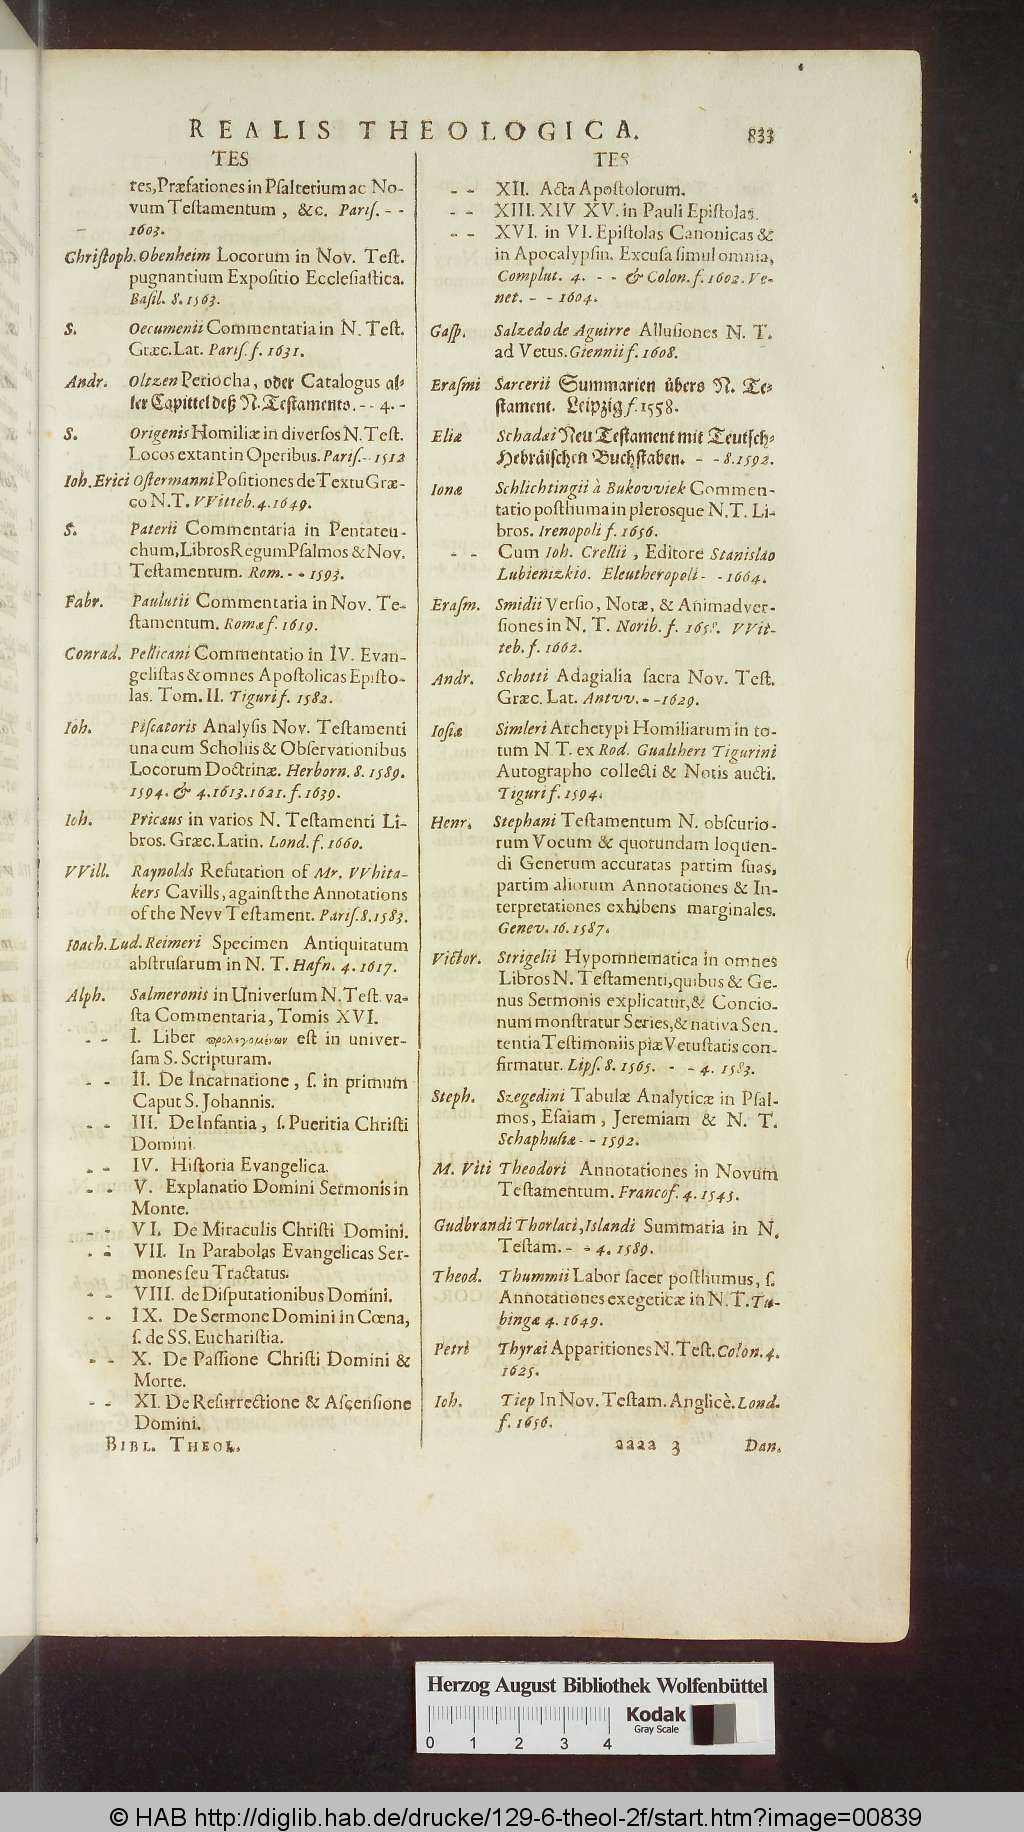 REALIS THEOLOGICA. 833
TES
tes, Præfationes in Pſalterium ac No-
vum Teſtamentum, &c. Pariſ. - -
1603.
Chriſtoph. Obenheim Locorum in Nov. Teſt.
pugnantium Expoſitio Eccleſiaſtica.
Baſil. 8. 1563.
S. Oecumenii Commentaria in N. Teſt.
Græc. Lat. Pariſ. f. 1631.
Andr. Oltzen Periocha, oder Catalogus al-
ler Capittel deß N. Teſtaments. - - 4. -
S. Origenis Homiliæ in diverſos N. Teſt.
Locos extant in Operibus. Pariſ. - - 1512
Ioh. Erici Oſtermanni Poſitiones de Textu Græ-
co N.T. VVitteb. 4. 1649.
S. Paterii Commentaria in Pentateu-
chum, Libros Regum Pſalmos & Nov.
Teſtamentum. Rom. - - 1593.
Fabr. Paulutii Commentaria in Nov. Te-
ſtamentum. Romæ f. 1619.
Conrad. Pellicani Commentatio in IV. Evan-
geliſtas & omnes Apoſtolicas Epiſto-
las. Tom. II. Tiguri f. 1582.
Ioh. Piſcatoris Analyſis Nov. Teſtamenti
una cum Scholiis & Obſervationibus
Locorum Doctrinæ. Herborn. 8. 1589.
1594. & 4. 1613. 1621. f. 1639.
Ioh. Pricæus in varios N. Teſtamenti Li-
bros. Græc. Latin. Lond. f. 1660.
VVill. Raynolds Refutation of Mr. VVhita-
kers Cavills, againſt the Annotations
of the Nevv Teſtament. Pariſ. 8. 1583.
Ioach. Lud. Reimeri Specimen Antiquitatum
abſtruſarum in N. T. Hafn. 4. 1617.
Alph. Salmeronis in Univerſum N. Teſt. va-
ſta Commentaria, Tomis XVI.
- - I. Liber προλεγομένων eſt in univer-
ſam S. Scripturam.
- - II. De Incarnatione, ſ. in primum
Caput S. Johannis.
- - III. De Infantia, ſ. Pueritia Chriſti
Domini.
- - IV. Hiſtoria Evangelica.
- - V. Explanatio Domini Sermonis in
Monte.
- - VI. De Miraculis Chriſti Domini.
- - VII. In Parabolas Evangelicas Ser-
mones ſeu Tractatus.
- - VIII. de Diſputationibus Domini.
- - IX. De Sermone Domini in Cœna,
ſ. de SS. Euchariſtia.
- - X. De Paſſione Chriſti Domini &
Morte.
- - XI. De Reſurrectione & Aſcenſione
Domini.
BIBL. THEOL.
TES
- - XII. Acta Apoſtolorum.
- - XIII. XIV XV. in Pauli Epiſtolas.
- - XVI. in VI. Epiſtolas Canonicas &
in Apocalypſin. Excuſa ſimul omnia,
Complut. 4. - - & Colon. f. 1602. Ve-
net. - - 1604.
Gaſp. Salzedo de Aguirre Alluſiones N. T.
ad Vetus. Giennii f. 1608.
Eraſmi Sarcerii Summarien übers N. Te-
ſtament. Leipzig f. 1558.
Eliæ Schadæi Neu Teſtament mit Teutſch-
Hebräiſchen Buchſtaben. - - 8. 1592.
Ionæ Schlichtingii à Bukovviek Commen-
tatio poſthuma in plerosque N.T. Li-
bros. Irenopoli f. 1656.
- - Cum Ioh. Crellii, Editore Stanislao
Lubienizkio. Eleutheropoli - - 1664.
Eraſm. Smidii Verſio, Notæ, & Animadver-
ſiones in N. T. Norib. f. 1658. VVit-
teb. f. 1662.
Andr. Schotti Adagialia ſacra Nov. Teſt.
Græc. Lat. Antvv. - - 1629.
Ioſiæ Simleri Archetypi Homiliarum in to-
tum N T. ex Rod. Gualtheri Tigurini
Autographo collecti & Notis aucti.
Tiguri f. 1594.
Henr. Stephani Teſtamentum N. obſcurio-
rum Vocum & quorundam loquen-
di Generum accuratas partim ſuas,
partim aliorum Annotationes & In-
terpretationes exhibens marginales.
Genev. 16. 1587.
Victor. Strigelii Hypomnematica in omnes
Libros N. Teſtamenti, quibus & Ge-
nus Sermonis explicatur, & Concio-
num monſtratur Series, & nativa Sen-
tentia Teſtimoniis piæ Vetuſtatis con-
firmatur. Lipſ. 8. 1565. - - 4. 1583.
Steph. Szegedini Tabulæ Analyticæ in Pſal-
mos, Eſaiam, Jeremiam & N. T.
Schaphuſiæ - - 1592.
M. Viti Theodori Annotationes in Novum
Teſtamentum. Francof. 4. 1545.
Gudbrandi Thorlaci, Islandi Summaria in N.
Teſtam. - - 4. 1589.
Theod. Thummii Labor ſacer poſthumus, ſ.
Annotationes exegeticæ in N.T. Tu-
bingæ 4. 1649.
Petri Thyræi Apparitiones N. Teſt. Colon. 4.
1625.
Ioh. Tiep In Nov. Teſtam. Anglicè. Lond.
f. 1656.
aaaa 3 Dan.
Herzog August Bibliothek Wolfenbüttel
Kodak
Gray Scale
0 1 2 3 4
© HAB http://diglib.hab.de/drucke/129-6-theol-2f/start.htm?image=00839